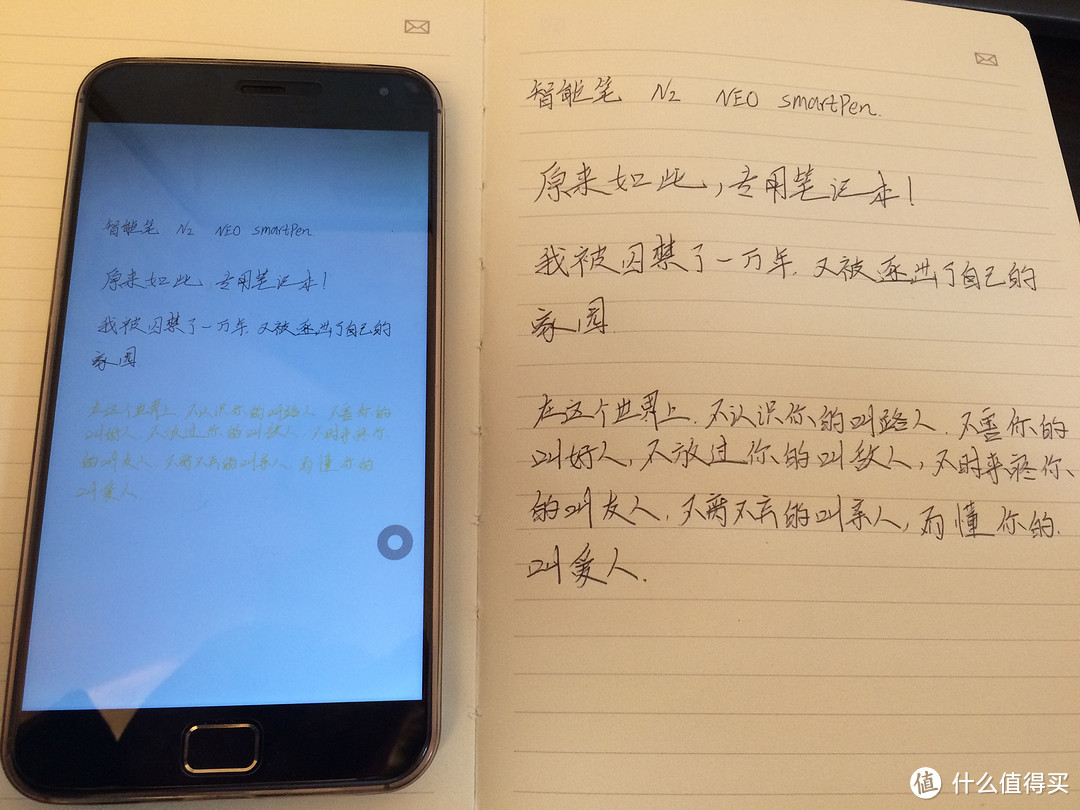 智能笔 N2 NEO smartPen
原来如此,专用笔记本!
我被囚禁了一万年.又被逐出了自己的
家园
在这个世界上.不认识你的叫路人.不你的
叫好人,不放过你的叫敌人,不时来疼你
的叫友人.不离不弃的叫亲人,有懂你的
叫爱人
智能笔 N2 NEO smartPen.
原来如此,专用笔记本!
我被囚禁了一万年.又被逐出了自己的
家园.
在这个世界上.不认识你的叫路人.不你的
叫好人,不放过你的叫敌人,不时来疼你
的叫友人.不离不弃的叫亲人,有懂你的.
叫爱人.
值 什么值得买